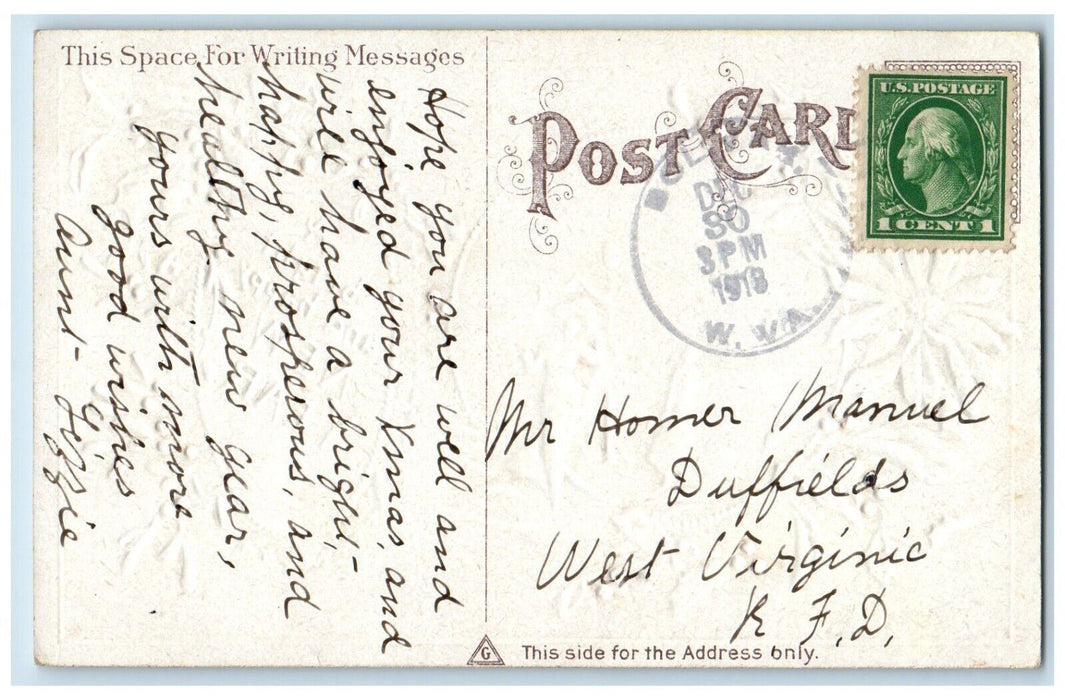 This Space For Writing Messages
Hope you are well and
enjoyed your Xmas, and
will have a bright,
happy, prosperous, and
healthy new year,
yours with more
good wishes
Aunt - Lizzie
POST CARD
U.S. POSTAGE
1 CENT 1
30
3 PM
1918
W. VA.
Mr Homer Manuel
Duffields
West Virginia
R. F. D.
G
This side for the Address only.